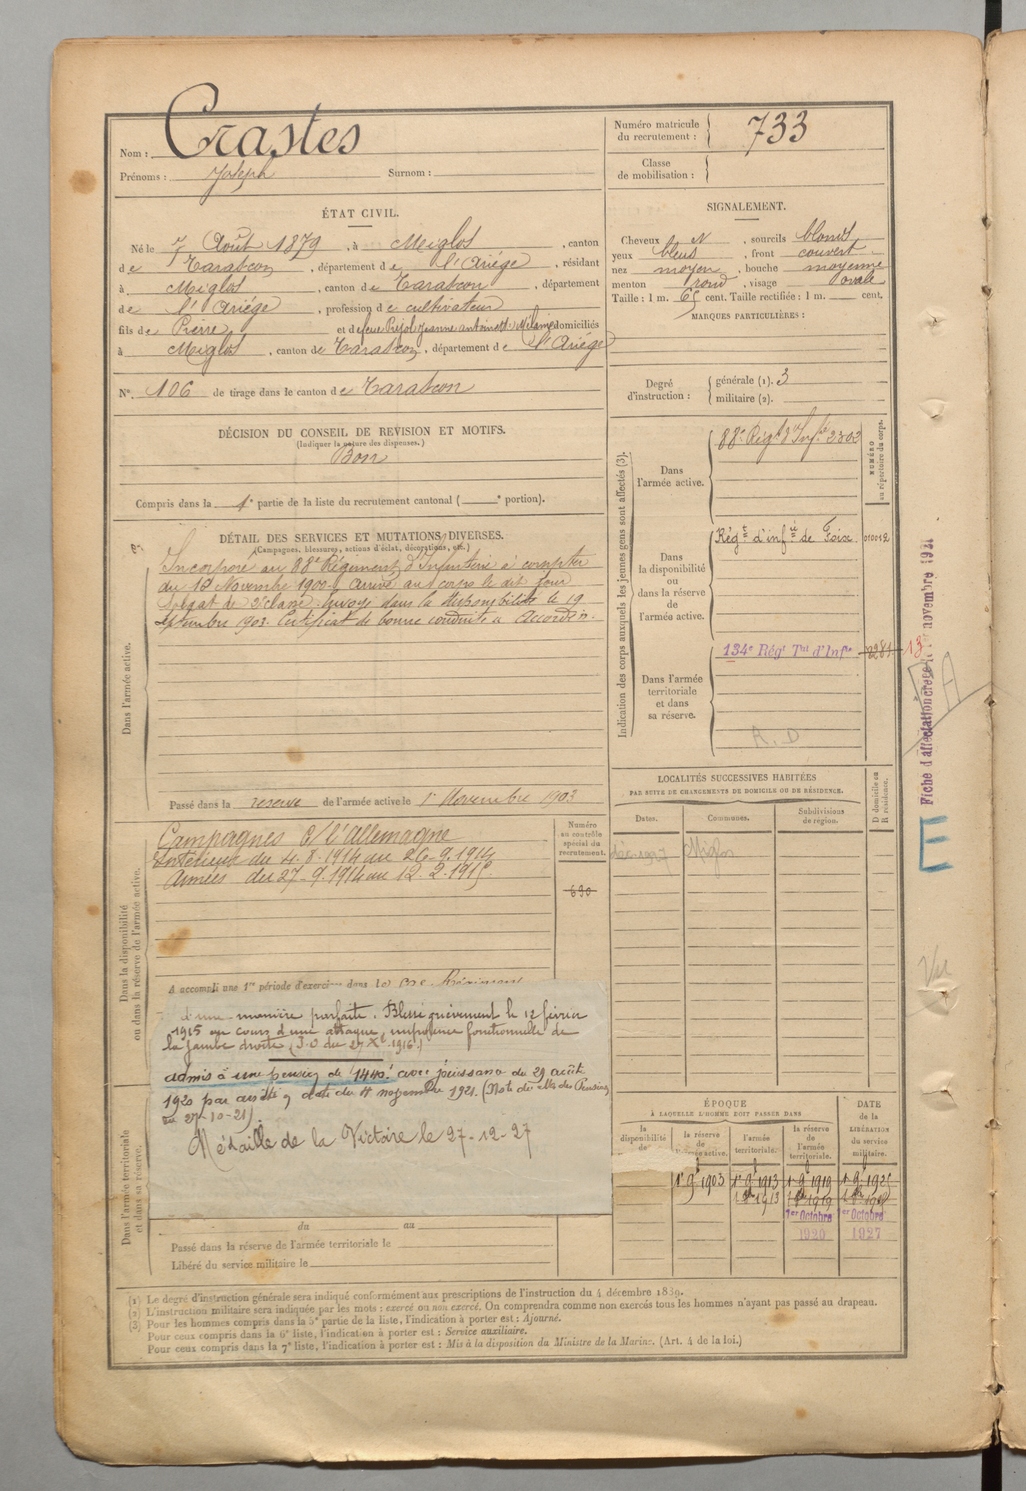 Nom : Crastes
Prénoms : Joseph Surnom :
Numéro matricule du recrutement : 733
Classe de mobilisation :
ÉTAT CIVIL.
Né le 7 Août 1879, à Miglos, canton
de Tarascon, département de l'Ariége, résidant
à Miglos, canton de Tarascon, département
de l'Ariége, profession de cultivateur
fils de Pierre et de feue Pujol Jeanne antoinette Mélanie domiciliés
à Miglos, canton de Tarascon, département de l'Ariége
N°. 106 de tirage dans le canton de Tarascon
SIGNALEMENT.
Cheveux N, sourcils blonds
yeux bleus, front couvert
nez moyen, bouche moyenne
menton rond, visage ovale
Taille : 1 m. 65 cent. Taille rectifiée : 1 m. cent.
MARQUES PARTICULIÈRES :
Degré d'instruction : générale (1). 3
militaire (2).
DÉCISION DU CONSEIL DE REVISION ET MOTIFS.
(Indiquer la nature des dispenses.)
Bon
Compris dans la 1e partie de la liste du recrutement cantonal ( e portion).
DÉTAIL DES SERVICES ET MUTATIONS DIVERSES.
(Campagnes, blessures, actions d'éclat, décorations, etc.)
Dans l'armée active.
Incorporé au 88e Régiment d'Infanterie à compter
du 16 Novembre 1900. Arrivé au corps le dit jour
Soldat de 2e classe. Envoyé dans la disponibilité le 19
septembre 1903. Certificat de bonne conduite "Accordé".
Passé dans la reserve de l'armée active le 1er Novembre 1903
Indication des corps auxquels les jeunes gens sont affectés (3).
NUMÉRO au répertoire du corps.
Dans l'armée active.
88e Régt d'Infie 2303
Dans la disponibilité ou dans la réserve de l'armée active.
Régt d'infie de Foix 010012
Dans l'armée territoriale et dans sa réserve.
134e Régt Tal d'Infie
13
R. D
Fiche d'affectation créée le novembre 1921
E
Vu
LOCALITÉS SUCCESSIVES HABITÉES
PAR SUITE DE CHANGEMENTS DE DOMICILE OU DE RÉSIDENCE.
Dates. Communes. Subdivisions de région. D domicile ou R résidence.
Miglos
Dans la disponibilité ou dans la réserve de l'armée active.
Numéro au contrôle spécial du recrutement.
690
Campagnes c/ l'Allemagne
Intérieur du 4.8.1914 au 26.9.1914
Armées du 27.9.1914 au 12.2.1915
A accompli une 1re période d'exercices dans le Régiment
d'une manière parfaite. Blessé grièvement le 12 février
1915 au cours d'une attaque, impotence fonctionnelle de
la jambe droite (J.O du 29 Xbre 1916.)
admis à une pension de 1440f avec jouissance du 29 août
1920 par arrêté en date du 4 novembre 1921. (Not. du Mtre des Pensions
du 27-10-21)
Médaille de la Victoire le 27-12-27
Dans l'armée territoriale et dans sa réserve.
du au
Passé dans la réserve de l'armée territoriale le
Libéré du service militaire le
ÉPOQUE À LAQUELLE L'HOMME DOIT PASSER DANS
DATE de la LIBÉRATION du service militaire.
la disponibilité de
la réserve de l'armée active.
l'armée territoriale.
la réserve de l'armée territoriale.
1er 9bre 1903 1er 9bre 1913 1er 9bre 1919 1er 9bre 1925
1er Octobre 1920 1er Octobre 1927
(1) Le degré d'instruction générale sera indiqué conformément aux prescriptions de l'instruction du 4 décembre 1889.
(2) L'instruction militaire sera indiquée par les mots : exercé ou non exercé. On comprendra comme non exercés tous les hommes n'ayant pas passé au drapeau.
(3) Pour les hommes compris dans la 5e partie de la liste, l'indication à porter est : Ajourné.
Pour ceux compris dans la 6e liste, l'indication à porter est : Service auxiliaire.
Pour ceux compris dans la 7e liste, l'indication à porter est : Mis à la disposition du Ministre de la Marine. (Art. 4 de la loi.)